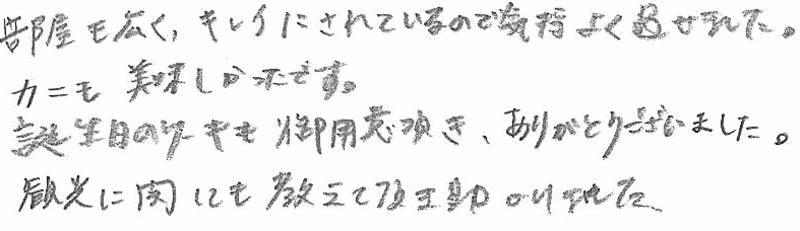 部屋も広く、キレイにされているので気持よく過せました。
カニも美味しかったです。
誕生日のケーキも御用意頂き、ありがとうございました。
観光に関しても教えて頂き助かりました